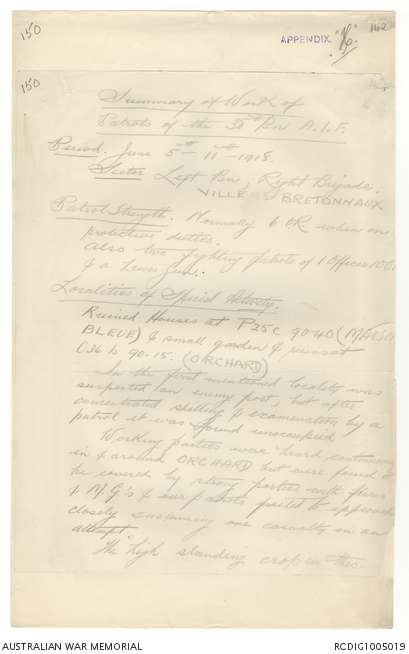 150
APPENDIX. "K"
162
150
Summary of Work of
Patrols of the 50th Bn A.I.F.
Period. June 5th - 11th - 1918.
Sector Left Bn; Right Brigade.
VILLERS BRETONNAUX
Patrol Strength. Normally 6 OR when on
protective duties.
Also two fighting patrols of 1 Officer 10 OR
& a Lewis Gun.
Localities of Special Activity.
Ruined Houses at P25c 90.40
BLEUE) & small garden & ruins at
O36 b 90.15. (ORCHARD)
In the first mentioned locality was
suspected an enemy post, but after
concentrated shelling & examination by a
patrol it was found unoccupied
Working parties were heard continuously
in & around ORCHARD but were found to
be covered by strong parties with
& M.G's & our patrols failed to approach
closely sustaining one casualty in an
attempt.
The high standing crop in this
AUSTRALIAN WAR MEMORIAL
RCDIG1005019